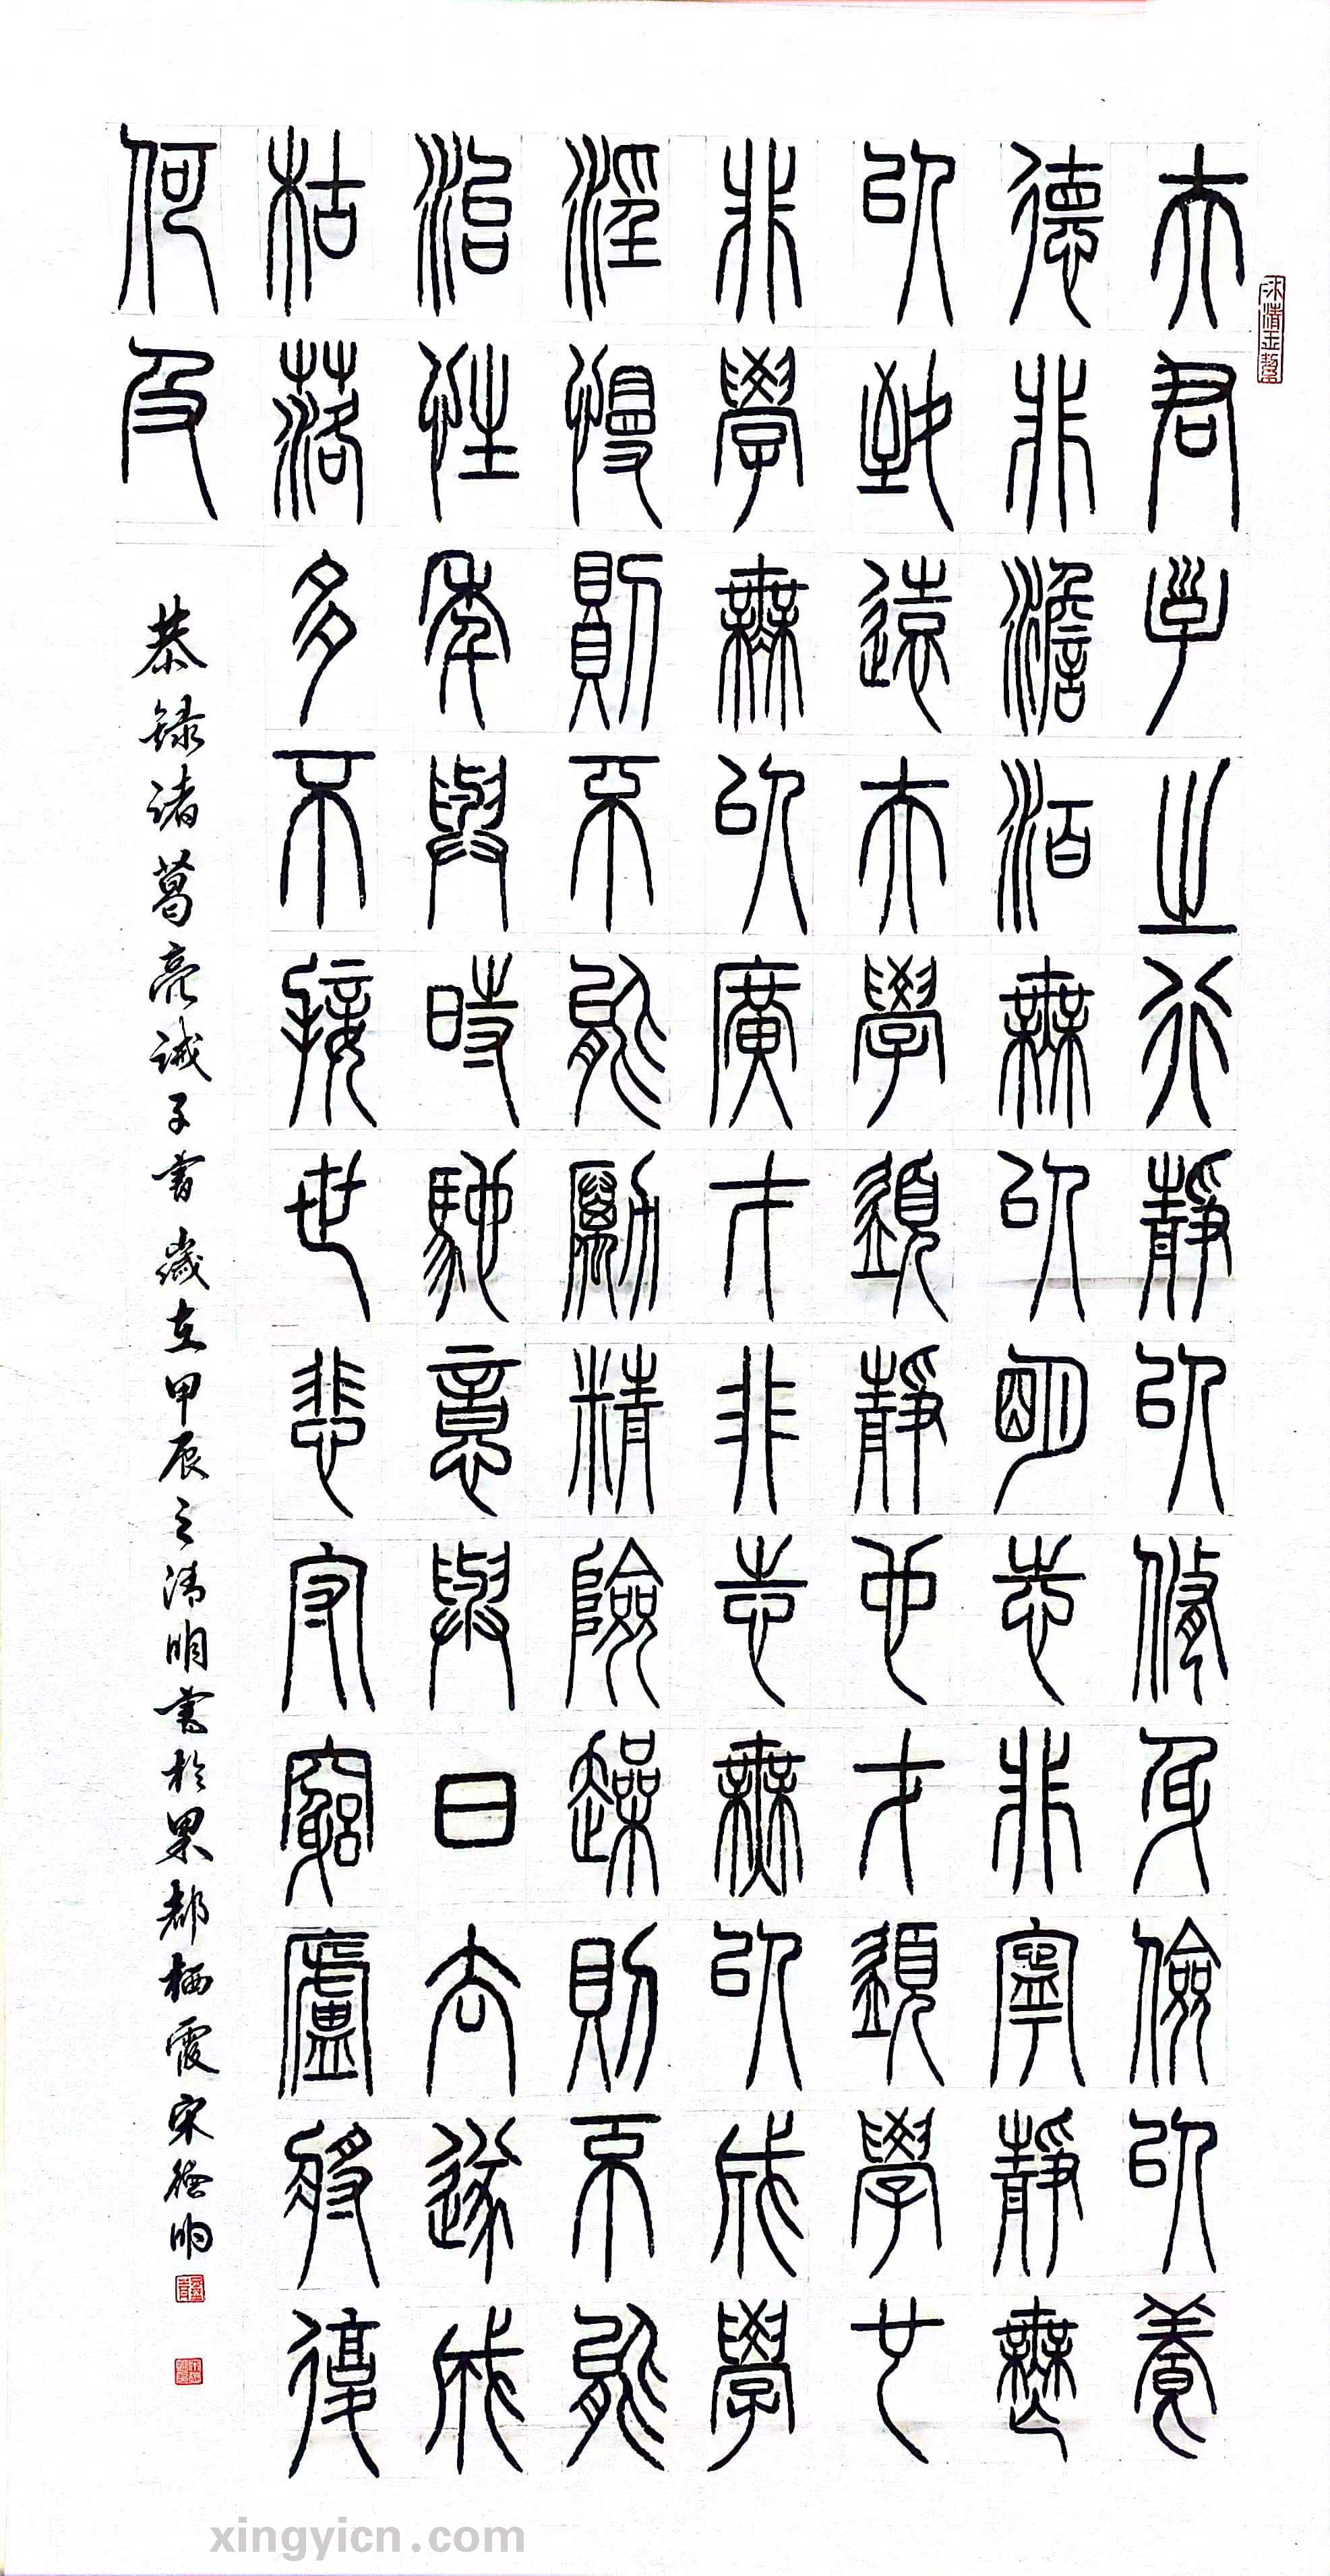 夫君子之行靜以脩身儉以養
德非澹泊無以明志非寧靜無
以致遠夫學須靜也才須學也
非學無以廣才非志無以成學
淫慢則不能勵精險躁則不能
治性年與時馳意與日去遂成
枯落多不接世悲守窮廬將復
何及
恭録诸葛亮诫子書歲在甲辰之清明書於果都栖霞宋德明
xingyicn.com